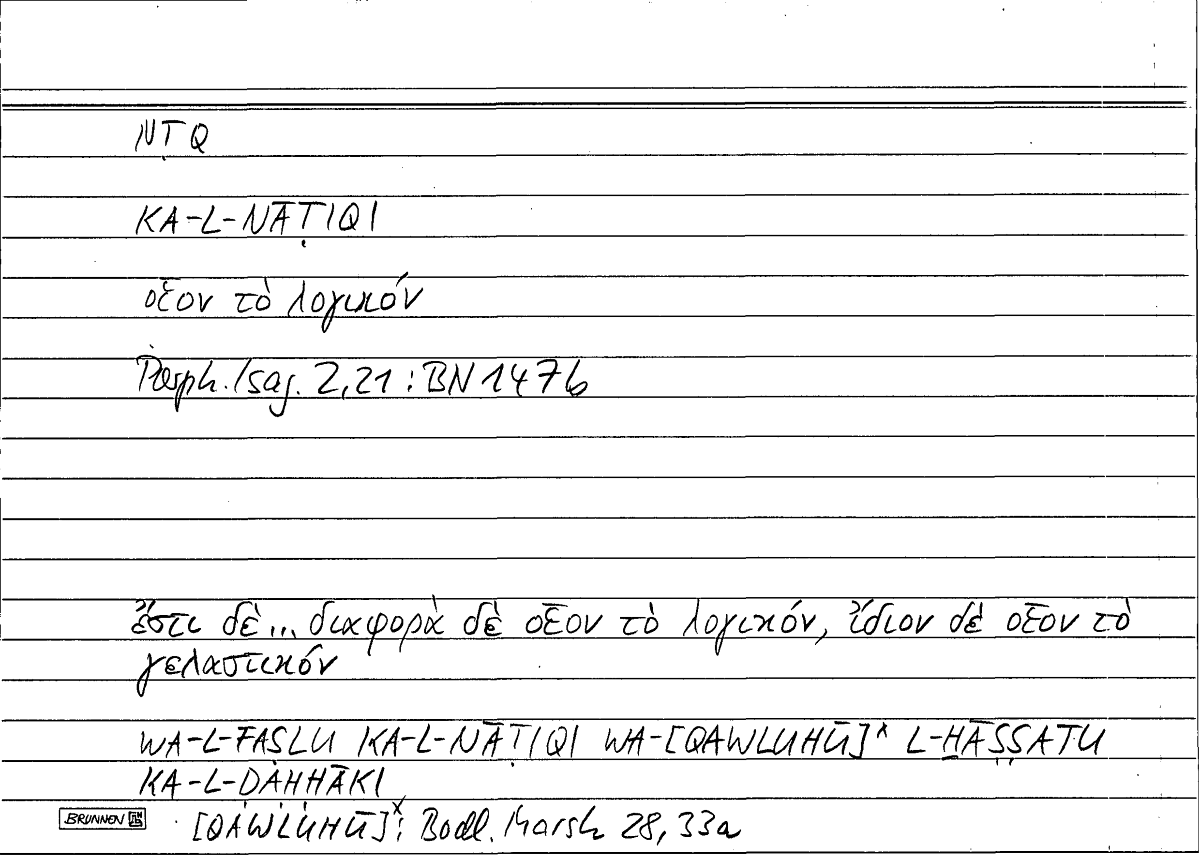 NṬQ
KA-L-NĀṬIQI
οἷον τὸ λογικόν
Porph. Isag. 2,21 : BN 147b
ἔστι δὲ... διαφορὰ δὲ οἷον τὸ λογικόν, ἴδιον δὲ οἷον τὸ
γελαστικόν
WA-L-FAṢLU KA-L-NĀṬIQI WA-[QAWLUHŪ]ˣ L-H̱ĀṢṢATU
KA-L-ḌAḤḤĀKI
BRUNNEN
[QAWLUHŪ]ˣ: Bodl. Marsh 28, 33a